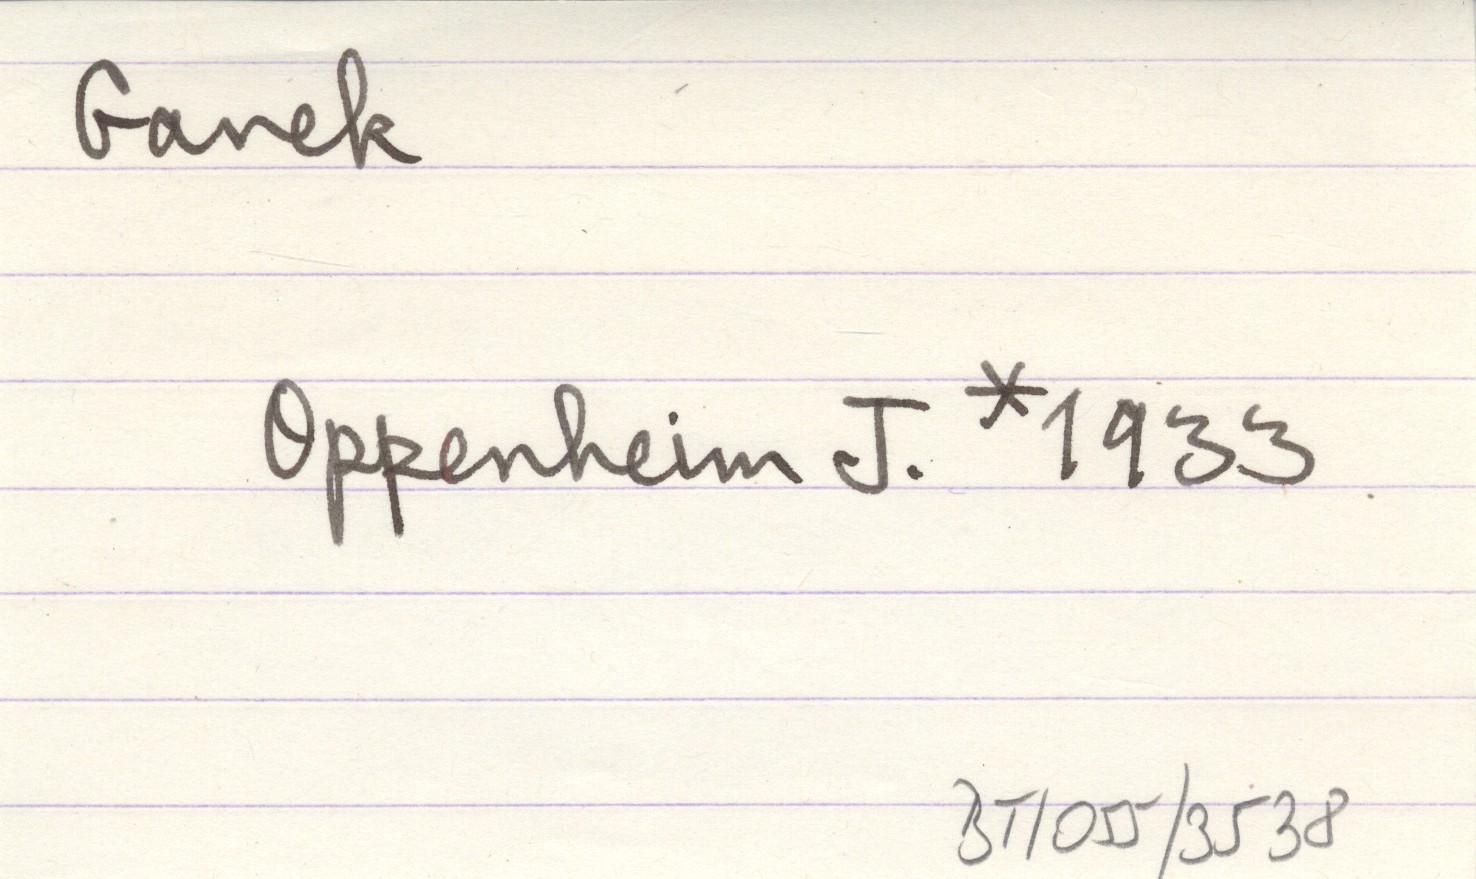 Ganek
Oppenheim J. *1933
BT/055/3538